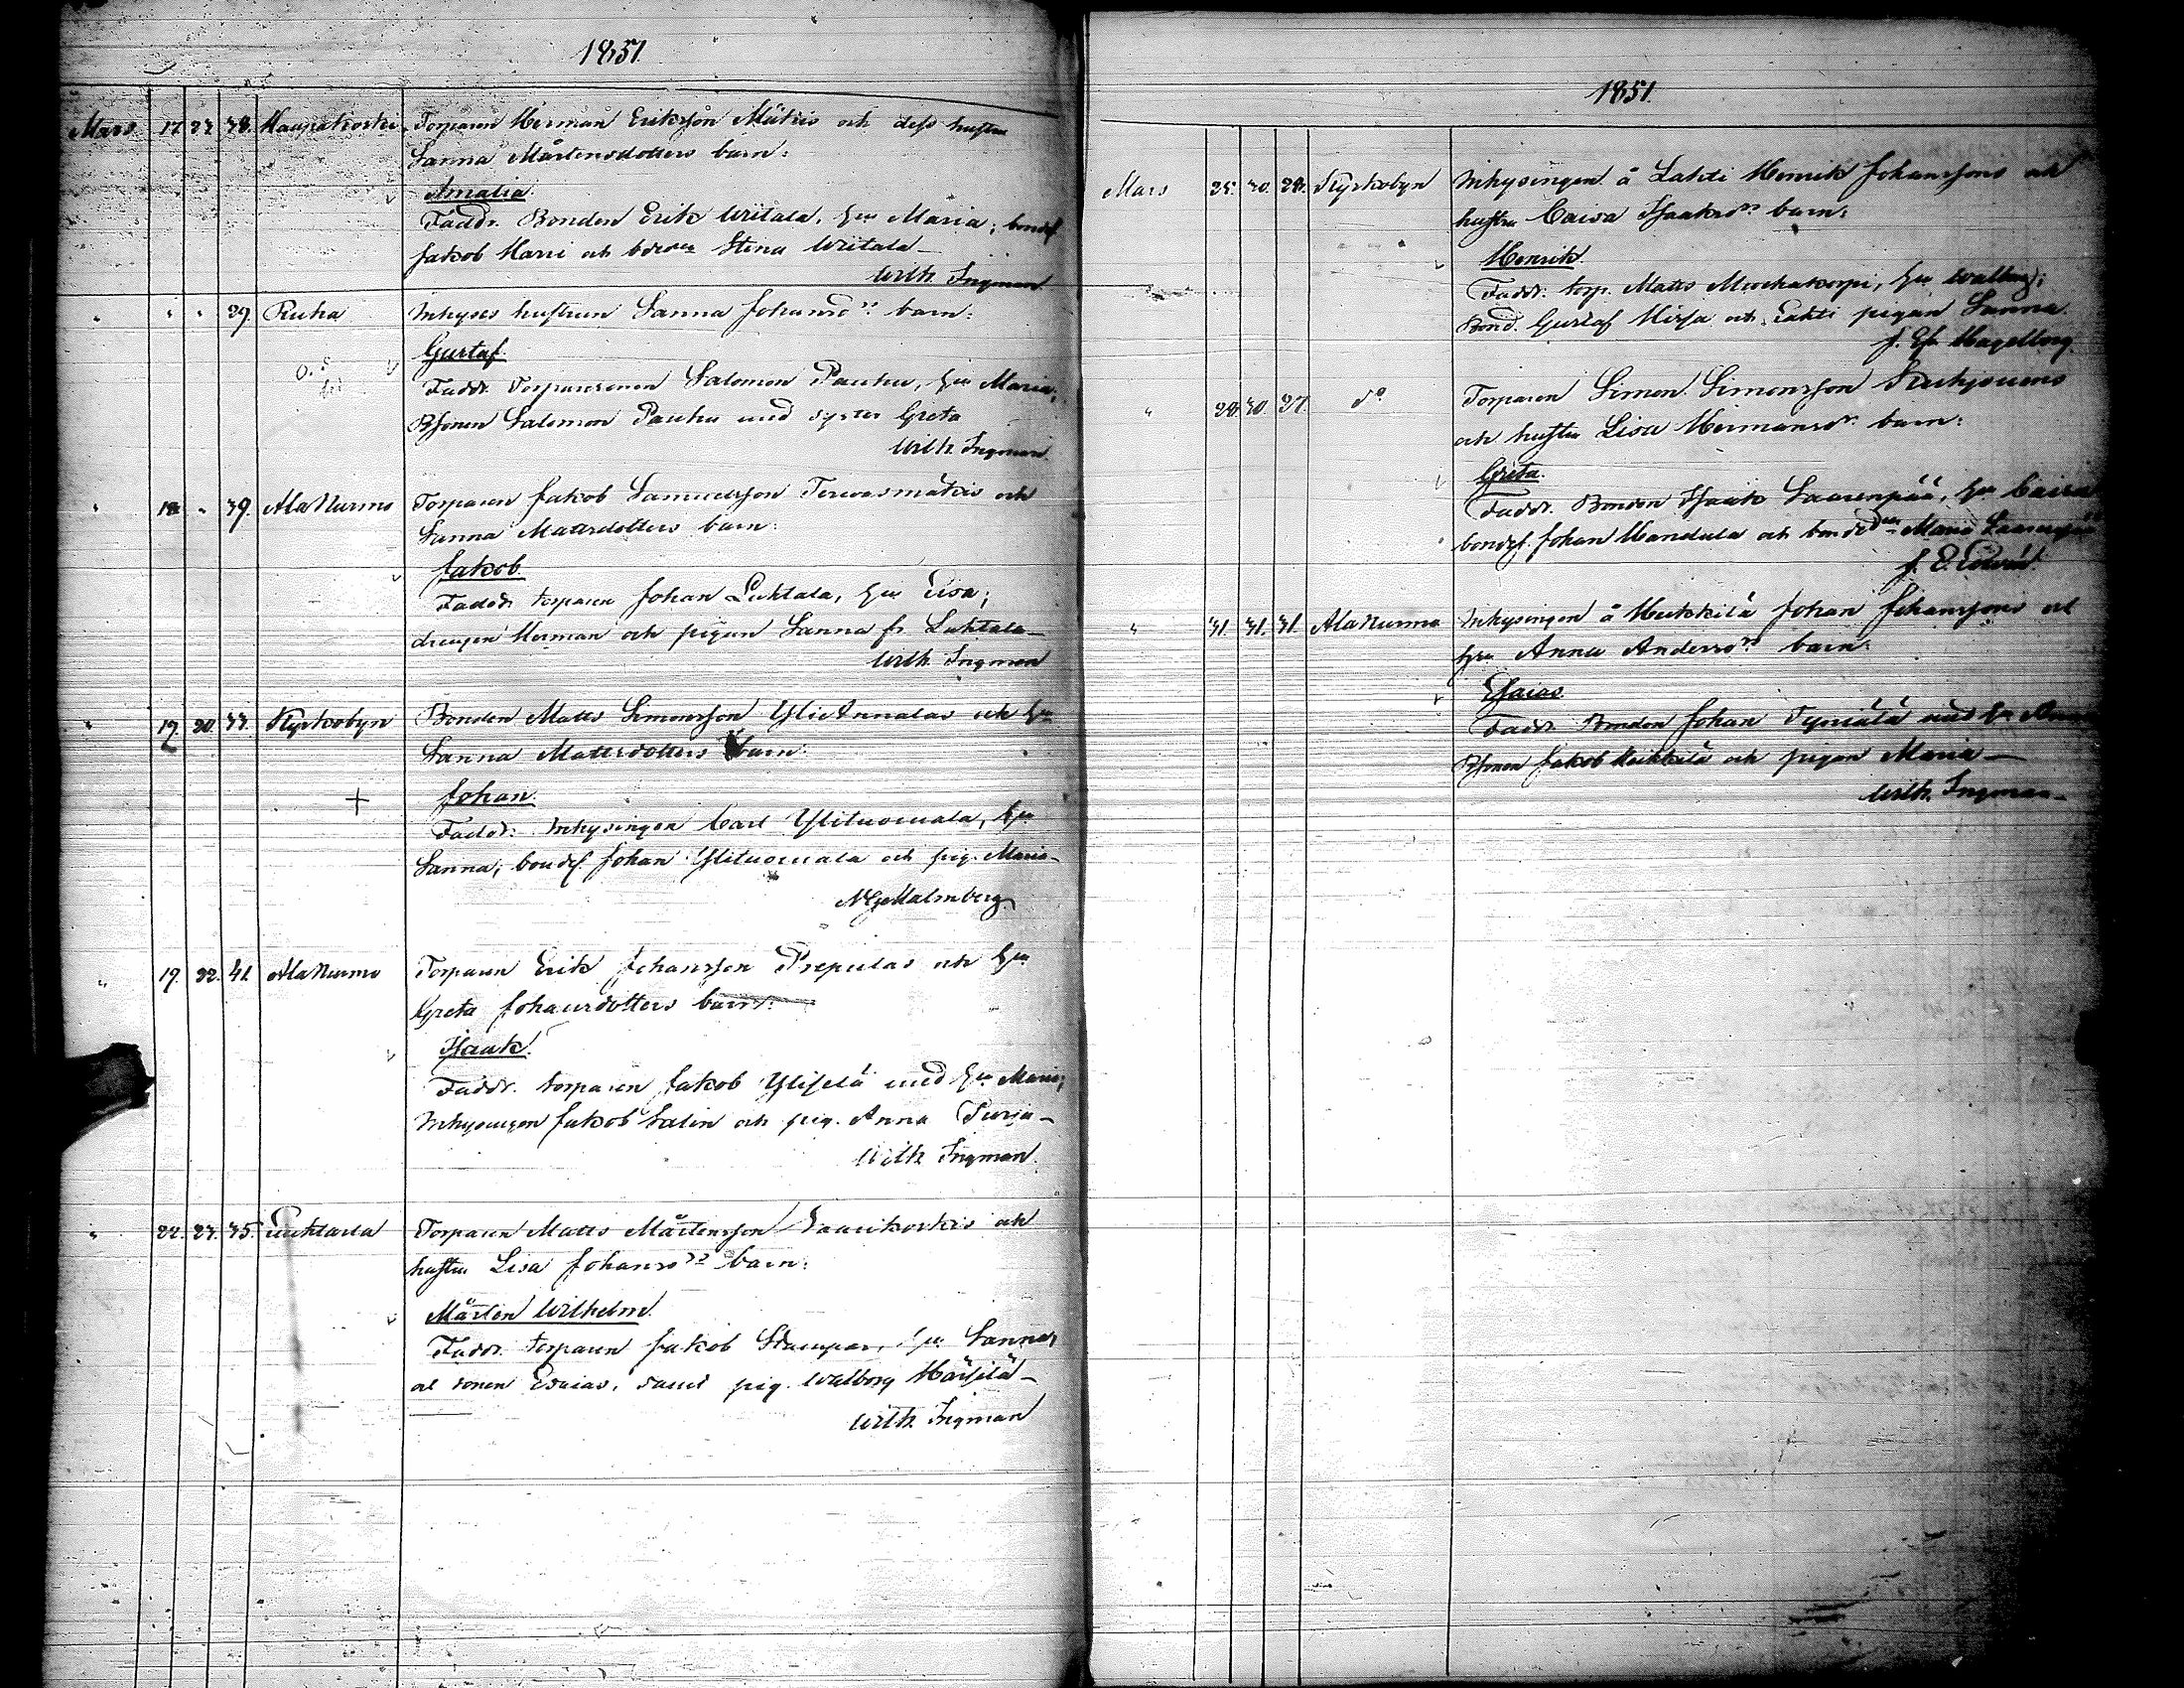 1851.
Mars 17. 23. 38. Kaupakoski Torparen Herman Eriksson Mäkis och dess hustru
Sanna Mårtensdotters barn:
Amalia.
Faddr. Bonden Erik Writala, hu Maria; bondes.
Jakob Harri och Stina Writala
Wilh. Ingman
" " " 29. Ruha Inhyses hustrun Sanna Johansdrs barn:
Gustaf.
o. ä
Faddr. Torparesonen Salomon Pauhu, hu Maria;
Bsonen Salomon Pauhu med syster Greta
Wilh. Ingman.
" 18 " 39. AlaNurmo Torparen Jakob Samuelsson Terwasmäkis och
Sanna Mattsdotters barn:
Jakob.
Faddr. torparen Johan Luhtala, hu Lisa;
drengen Herman och pigan Sanna fr. Luhtala
Wilh. Ingman
" 19. 20. 33. Kyrkobyn Bonden Matts Simonsson YliAnnalas och hu
Sanna Mattsdotters barn:
+ Johan.
Faddr. Inhysingen Carl Ylituomala, hu
Sanna; bondes. Johan Ylituomala och pig. Maria
NGMalmberg
" 19. 22. 41. AlaNurmo Torparen Erik Johansson Prepulas och hu
Greta Johansdotters barn:
Isaak.
Faddr. torparen Jakob Yliselä med hu Maria;
Inhysingen Jakob Salin och pig. Anna Turja
Wilh. Ingman.
" 22. 23. 35. Luhtarla Torparen Matts Mårtensson Saarikoskis och
hustru Lisa Johansdrs barn:
Mårten Wilhelm.
Faddr. torparen Jakob Stampar, hu Sanna,
och sonen Esaias, samt pig. Walborg Härsilä
Wilh. Ingman
1851.
Mars 25. 30. 28. Kyrkobyn Inhysingen å Lahti Henrik Johanssons och
hustru Caisa Isaaksdrs barn:
Henrik.
Faddr. torp. Matts Murhakorpi, hu Walborg;
Bond. Gustaf Hirsa och Lahti pigan Sanna.
Hagelberg.
" 28. 30. 27. do Torparen Simon Simonsson
och hustru Lisa Hermansdrs barn:
Greta.
Faddr. Bonden Isaak Saarenpää, hu Caisa
bondes. Johan Handula och Maria Saarenpää
" 31. 31. 31. AlaNurmo Inhysingen å Heikkilä Johan Johanssons och
hu Anna Andersdrs barn:
Esaias.
Faddr. Bonden Johan Tyniälä med hu
Bsonen Jakob Heikkilä och pigan Maria
Wilh. Ingman